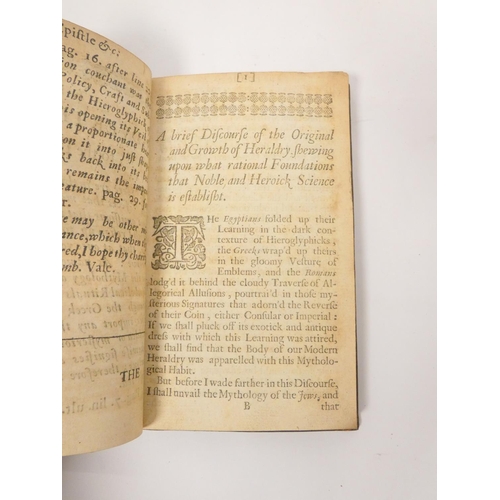 pistle &c:
ag. 16. after line
on conchant was
Policy, Craft and
the Hieroglyphic
is opening its
a proportionate
on it into just
ks back into its
remains the
ature. pag. 29.
may be other
ance, which when
red, I hope thy
mb. Vale.
THE
[ 1 ]
A brief Discourse of the Original
and Growth of Heraldry, shewing
upon what rational Foundations
that Noble and Heroick Science
is establisht.
THe Egyptians folded up their
Learning in the dark con-
texture of Hieroglyphicks,
the Greeks wrap'd up theirs
in the gloomy Vesture of
Emblems, and the Romans
lodg'd it behind the cloudy Traverse of Al-
legorical Allusions, pourtrai'd in those my-
sterious Signatures that adorn'd the Reverse
of their Coin, either Consular or Imperial:
If we shall pluck off its exotick and antique
dress with which this Learning was attired,
we shall find that the Body of our Modern
Heraldry was apparelled with this Mytholo-
gical Habit.
But before I wade farther in this Discourse,
I shall unvail the Mythology of the Jews, and
B that